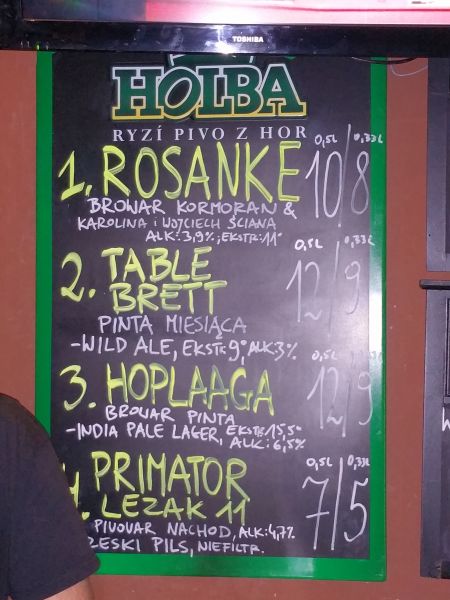 TOSHIBA
HOLBA
RYZÍ PIVO Z HOR
1. ROSANKE 0,5L/0,33L 10/8
BROWAR KORMORAN &
KAROLINA i WOJCIECH ŚCIANA
ALK: 3,9%; EKSTR: 11°
2. TABLE BRETT 0,5L/0,33L 12/9
PINTA MIESIĄCA
-WILD ALE, EKSTR: 9°, ALK: 3%
3. HOPLAAGA 0,5L/0,33L 12/9
BROWAR PINTA
-INDIA PALE LAGER, EKSTR: 15,5°
ALK: 6,5%
4. PRIMATOR 0,5L/0,33L 7/5
LEZAK 11
PIVOVAR NACHOD, ALK: 4,7%
ZESKI PILS, NIEFILTR.